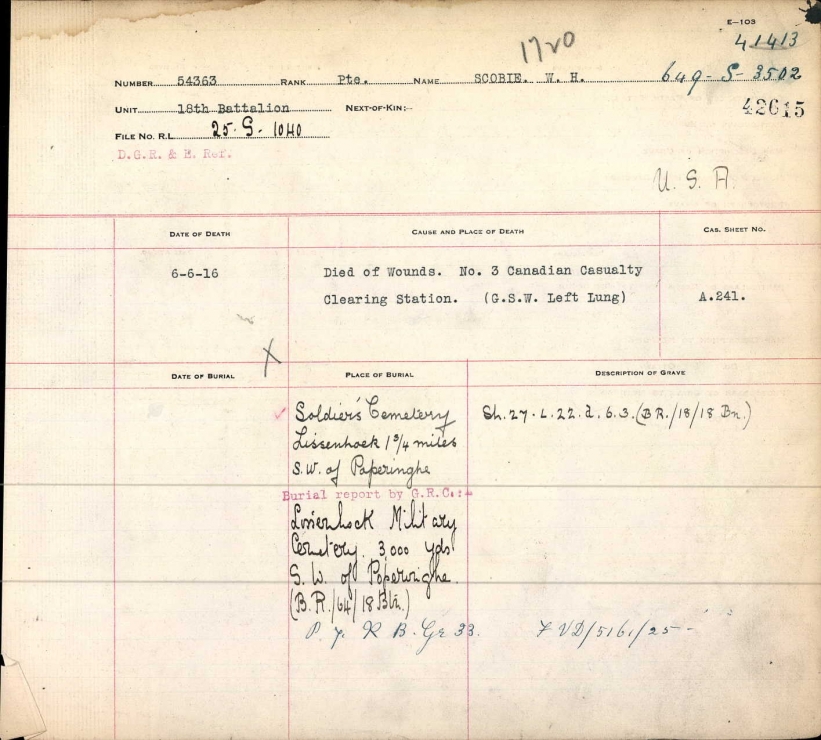 E-103
41413
1720
NUMBER 54363 RANK Pte. NAME SCOBIE. W. H. 649-S-3502
UNIT 18th Battalion NEXT-OF-KIN:- 42615
FILE NO. R.L. 25-S-1040
D.G.R. & E. Ref.
U.S.A.
DATE OF DEATH CAUSE AND PLACE OF DEATH CAS. SHEET NO.
6-6-16 Died of Wounds. No. 3 Canadian Casualty
Clearing Station. (G.S.W. Left Lung) A.241.
DATE OF BURIAL X PLACE OF BURIAL DESCRIPTION OF GRAVE
Soldier's Cemetery Sh.27.L.22.d.6.3.(BR./18/18 Bn.)
Lissenhoek 1 3/4 miles
S.W. of Poperinghe
Burial report by G.R.C.:-
Military
Cemetery 3,000 yds
S. W. of Poperinghe.
(B.R./64/18 Btn.)
R B. Gr 33. VD/5161/25-